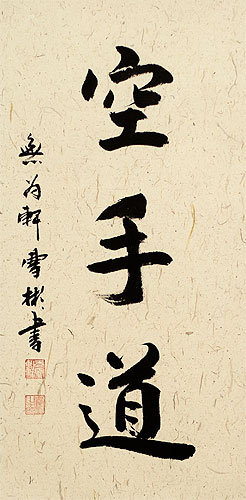 空手道
無為軒雪彬書